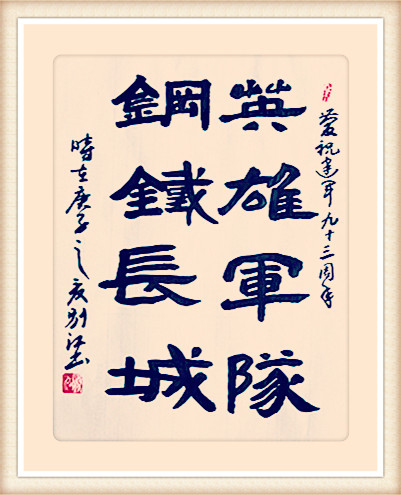 慶祝建军九十三周年
英雄軍隊
鋼鐵長城
時在庚子之夏